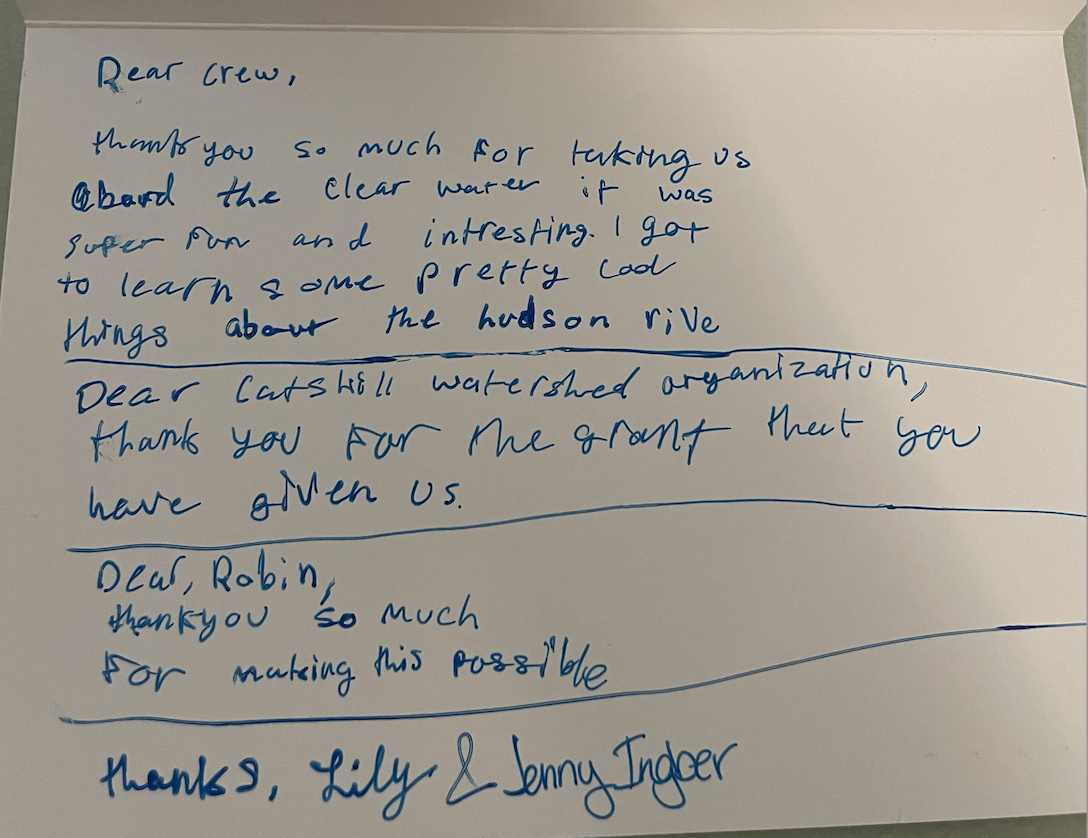 Dear crew,
thank you so much for taking us
aboard the Clear water it was
super fun and intresting. I got
to learn some pretty cool
things about the hudson rive
Dear Catskill watershed organization,
thank you for the grant that you
have given us.
Dear, Robin,
thankyou so much
for making this possible
thanks, Lily & Jenny Ingber